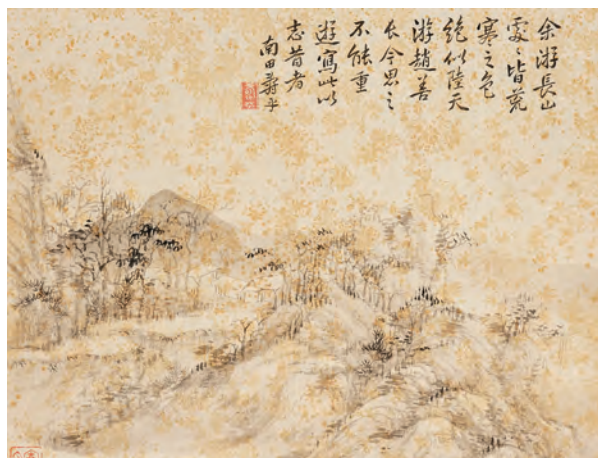 余游長山
處〻皆荒
寒之色
絶似陸天
游趙善
長今思之
不能重
遊寫此以
志昔者
南田壽平